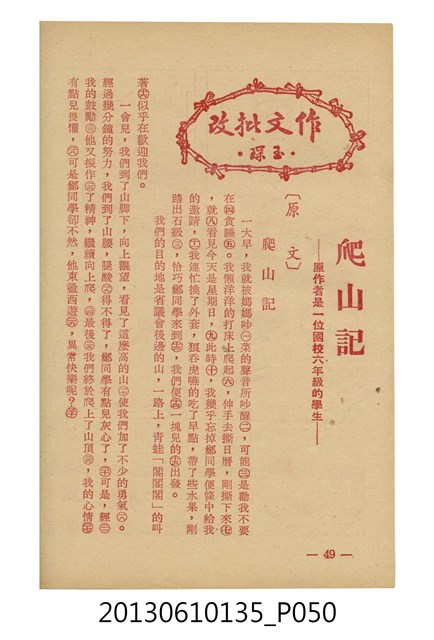 作文批改
·玉琛·
爬山記
——原作者是一位國校六年級的學生——
〔原文〕
爬山記
一大早，我就被媽媽吵㊀菜的聲音所吵醒㊁，可能㊂是勸我不要
在㊃貪睡㊄。我懶洋洋的打床上爬起㊅，伸手去撕日曆，剛撕下來㊆
，就㊇看見今天是星期日，㊈此時㊉，我幾乎忘掉鄭同學便條中給我
的邀請，我連忙換了外套，狼吞虎嚥的吃了早點，帶了些水果，剛
踏出石級，恰巧鄭同學來到，我們便一塊兒的出發。
我們的目的地是省議會後邊的山，一路上，青蛙「閣閣閣」的叫
著似乎在歡迎我們。
一會兒，我們到了山脚下，向上觀望，看見了這麼高的山使我們加了不少的勇氣。
經過幾分鐘的努力，我們到了山腰，腿酸得不得了，鄭同學有點兒灰心了，可是，經
我的鼓勵他又振作了精神，繼續向上爬，最後我們終於爬上了山頂，我的心情
有點兒畏懼，可是鄭同學卻不然，他東遊西遊，異常快樂呢？
— 49 —
20130610135_P050